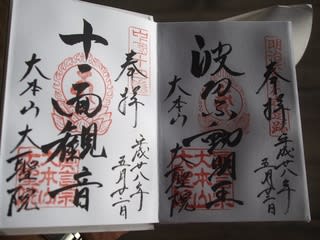 奉拝
平成廿八年
五月廿二日
波切不動明王
大本山大聖院
奉拝
平成廿八年
五月廿二日
十一面観音
大本山大聖院